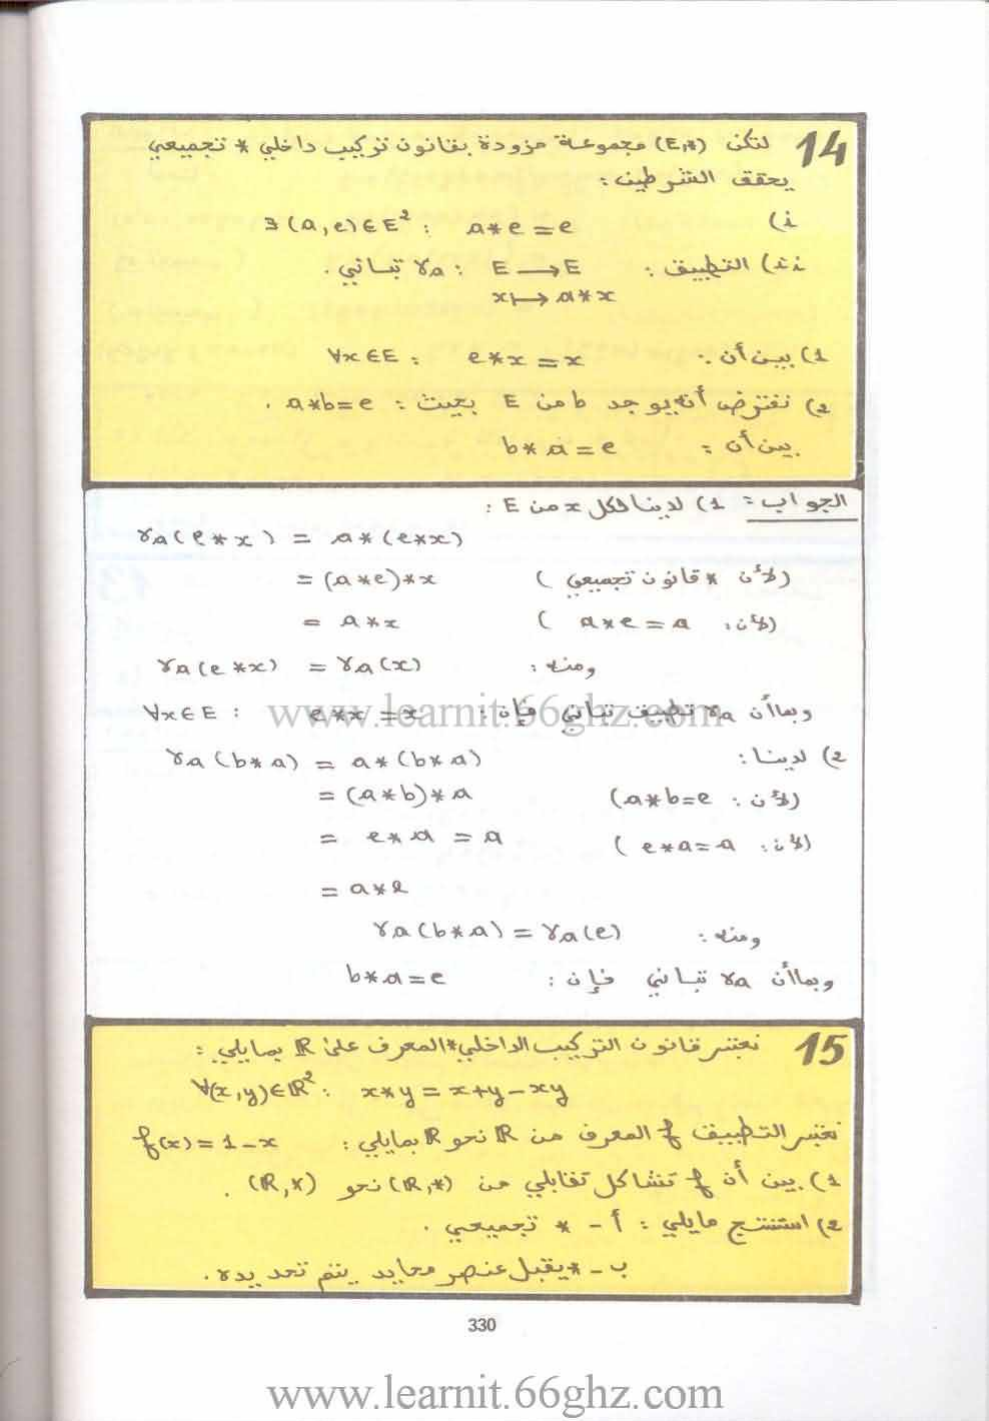 14 لتكن (E,*) مجموعة مزودة بقانون تركيب داخلي * تجميعي
يحقق الشرطين :
i) ∃(a,e)∈E² : a*e=e
ii) التطبيق : E → E : γa تبايني .
x ↦ a*x
1) بين أن : ∀x∈E : e*x=x
2) نفترض أنه يوجد b من E بحيث : a*b=e .
بين أن : b*a=e
الجواب : 1) لدينا لكل x من E :
γa(e*x) = a*(e*x)
= (a*e)*x (لأن * قانون تجميعي)
= a*x (لأن : a*e=a)
ومنه : γa(e*x) = γa(x)
وبما أن γa تطبيق تبايني فإن : ∀x∈E : e*x=x
www.learnit.66ghz.com
2) لدينا : γa(b*a) = a*(b*a)
= (a*b)*a (لأن : a*b=e)
= e*a = a (لأن : e*a=a)
= a*e
ومنه : γa(b*a) = γa(e)
وبما أن γa تبايني فإن : b*a=e
15 نعتبر قانون التركيب الداخلي * المعرف على ℝ بمايلي :
∀(x,y)∈ℝ² : x*y = x+y-xy
نعتبر التطبيق f المعرف من ℝ نحو ℝ بمايلي : f(x)=1-x
1) بين أن f تشاكل تقابلي من (ℝ,*) نحو (ℝ,×) .
2) استنتج مايلي : أ - * تجميعي .
ب - * يقبل عنصر محايد يتم تحديده .
330
www.learnit.66ghz.com